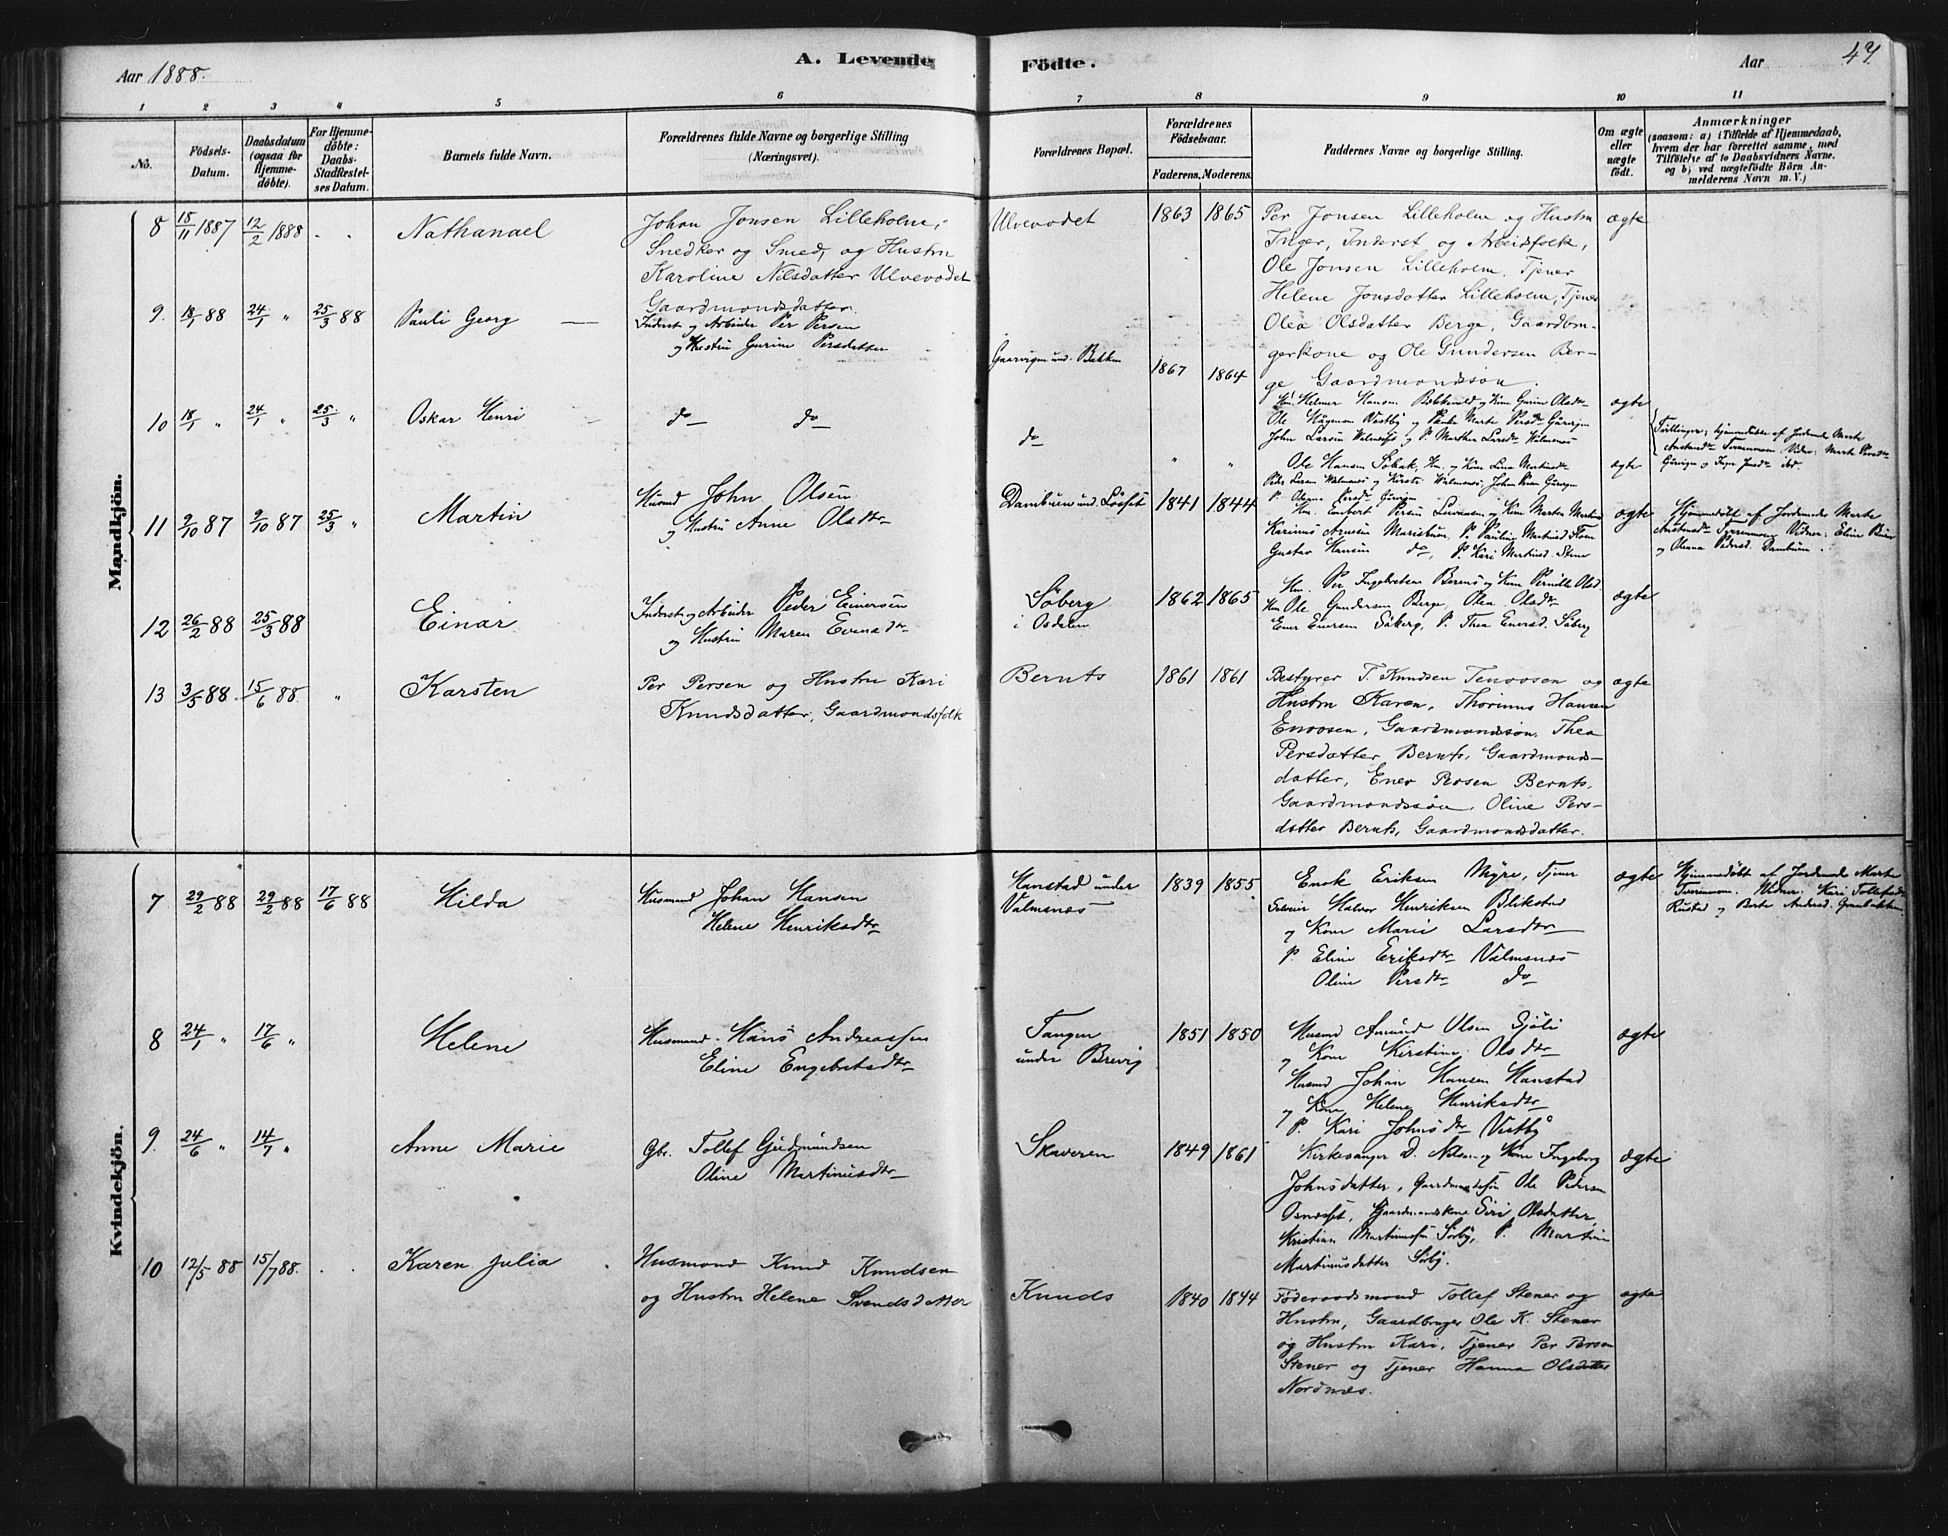 Aar 1888.
A. Levende Fødte.
Aar
47
1 2 3 4 5 6 7 8 9 10 11
No.
Fødsels-Datum.
Daabsdatum (ogsaa for Hjemmedøbte).
For Hjemmedøbte: Daabs-Stadfæstelses Datum.
Barnets fulde Navn.
Forældrenes fulde Navne og borgerlige Stilling (Næringsvei).
Forældrenes Bopæl.
Forældrenes Fødselsaar.
Faderens. Moderens.
Faddernes Navne og borgerlige Stilling.
Om ægte eller uægte født.
Anmærkninger
(saasom: a) i Tilfælde af Hjemmedaab, hvem der har forrettet samme, med Tilføielse af to Daabsvidners Navne. og b) ved uægtefødte Børn Anmelderens Navn m. V.)
Mandkjön.
8 18/11 1887 12/2 1888 Nathanael
Johan Jonsen Lilleholm,
Snedker og Smed, og Hustru
Karoline Nilsdatter Ulvevadet
Gaardmandsdatter.
Ulvevadet 1863 1865
Per Jonsen Lilleholm og Hustru
Inger, Inderst og Arbeidsfolk,
Ole Jonsen Lilleholm, Tjener
Helene Jonsdatter Lilleholm, Tjener
Olea Olsdatter Berge, Gaardbru-
gerkone og Ole Gundersen Ber-
ge Gaardmandssøn.
ægte
9. 18/1 88 24/1 " 25/3 88 Pauli Georg
Inderst og Arbeider Per Persen
og Hustru Gurine Persdatter
Gaarvigen und. Bakken 1867 1864
Hm. Helmer Hansen og Kone Gurine Olsdtr
Ole Vestby
John Larsen Valmsnæs og P. Marthe Larsdtr Valmsnæs
ægte
10 18/1 " 24/1 " 25/3 " Oskar Henri
do do
do " "
Ole Hansen Søbak, Hm. og Kone Lina Martinsdtr
ægte
Tvillinger, hjemmedøbte af Jordemoder Marte
11 9/10 87 9/10 87 25/3 " Martin
Husmd John Olsen
og Hustru Anne Olsdtr
Dambuen und. Løvset 1841 1844
Karinus Arnesen Maribuen, P. Pauline Martinsd
Gustav Hansen do, P. Kari Martinsd. Stene
ægte
Hjemmedøbt af Jordemoder Marte
12 26/2 88 25/3 88 Einar
Inderst og Arbeider Peder Einersen
og Hustru Maren Evensdtr
Søberg
i Osdalen 1862 1865
Hm. Per Ingebretsen Berens og Kone Pernille Olsd.
Hm Ole Gundersen Berge, Olea Olsdtr
Ener Enersen Søberg, P. Thea Enersd. Søberg
ægte
13 3/5 88. 15/6 88. " Karsten
Per Persen og Hustru Kari
Knudsdatter, Gaardmandsfolk
Bernts 1861 1861
Bestyrer T. Knudsen Tenoosen og
Hustru Karen, Thorinus Hansen
Enoosen, Gaardmandssøn, Thea
Persdatter Bernts, Gaardmands-
datter, Ener Persen Bernts,
Gaardmandssøn, Oline Pers-
datter Bernts, Gaardmandsdatter.
ægte
Kvindekjön.
7 29/2 88 29/2 88 17/6 88 Hilda
Husmand Johan Hansen
Helene Henriksdtr
Hanstad under
Valmsnæs 1839 1855
Enok Eriksen Myre, Tjener
Halvor Henriksen Blikstad
og Kone Marie Larsdtr
P. Eline Eriksdtr Valmsnæs
Oline Persdtr do
ægte
Hjemmedøbt af Jordemoder Marte
Vidner: Kari Tollefsdtr
Rustad og Berte Andersd. Granbakken
8 24/1 " 17/6 " Helene
Husmand Hans Andreassen
Eline Engebretsdtr
Tangen
under Brevig 1851 1850
Husmd Amund Olsen Sjøli
og Kone Kirstine Olsdtr
Husmd Johan Hansen Hanstad
og Kone Helene Henriksdtr
P. Kari Johnsdtr Vestby
ægte
9. 24/6 " 14/7 " Anne Marie
Gbr. Tollef Gudmundsen
Oline Martinusdtr
Skaveren 1849 1861
Kirkesanger D. Nilsen og Kone Ingeborg
Johnsdatter, Gaardmandssøn Ole Pedersen
Osnæsset, Gaardmandskone Siri Olsdatter,
Kristian Martinussen Sørby, P. Martine
Martinusdatter Sørby.
ægte
10 12/5 88 15/7 88. Karen Julia
Husmand Knud Knudsen
og Hustru Helene Svendsdatter
Knuds 1840 1844
Føderaadsmand Tollef Stener og
Hustru, Gaardbruger Ole K. Stener
og Hustru Kari, Tjener Per Persen
Stener og Tjener Hanna Olsdatter
Nordnæs.
ægte